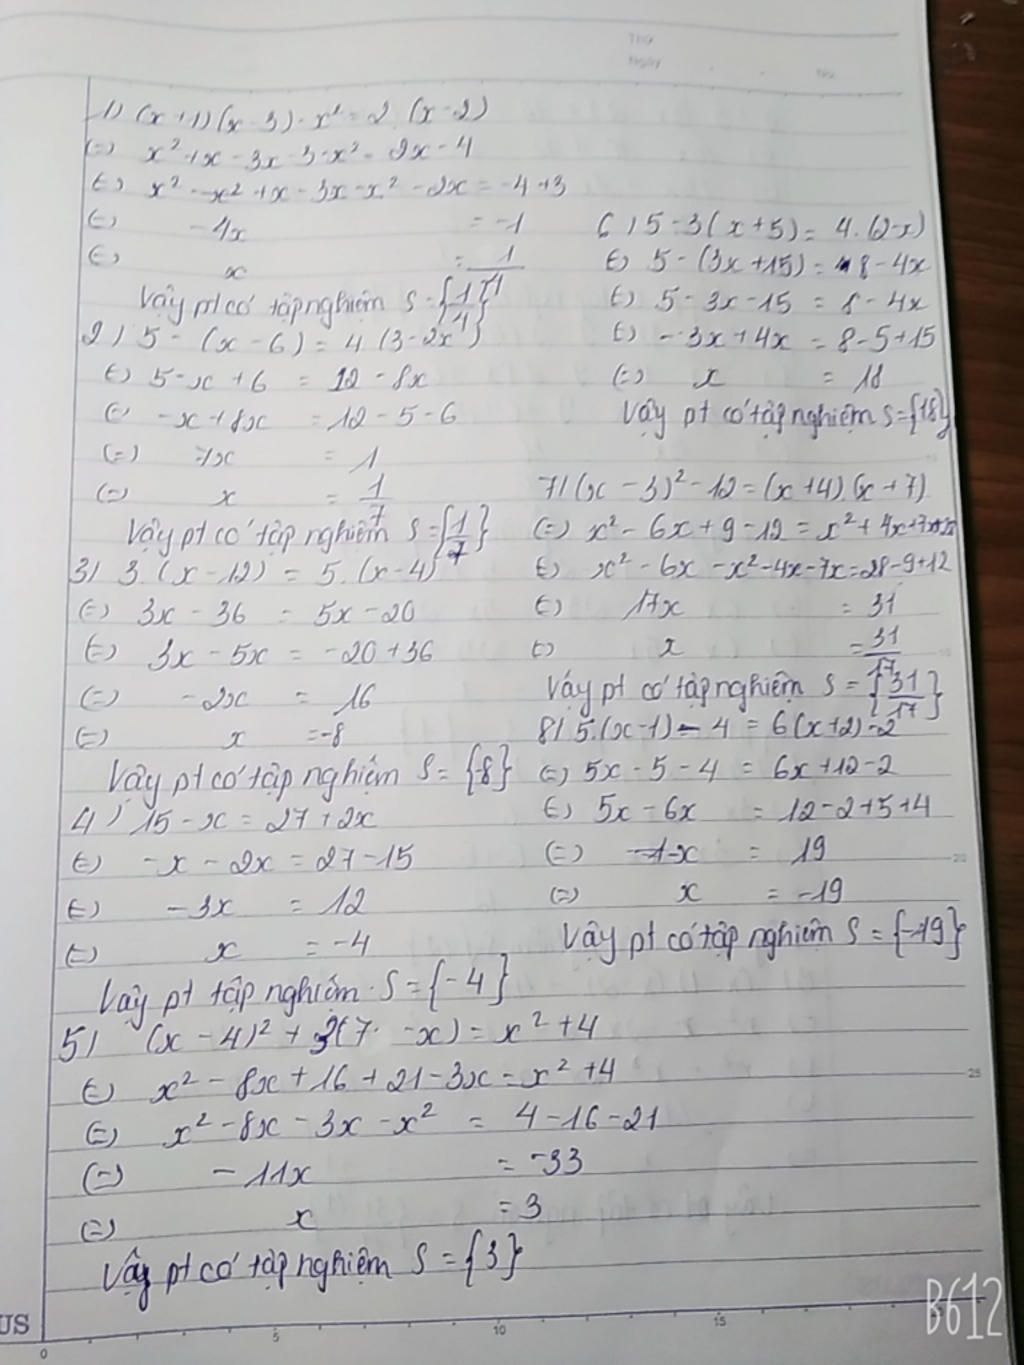 Thứ
Ngày
No.
1) (x+1)(x-3)-x² = 2.(x-2)
(=) x²+x-3x-3-x² = 2x-4
(=) x²-x²+x-3x-x²-2x = -4+3
(=) -4x = -1
(=) x = 1/4
Vậy pt có tập nghiệm S = {1/4}
2) 5-(x-6) = 4(3-2x)
(=) 5-x+6 = 12-8x
(=) -x+8x = 12-5-6
(=) 7x = 1
(=) x = 1/7
Vậy pt có tập nghiệm S = {1/7}
3) 3.(x-12) = 5.(x-4)
(=) 3x-36 = 5x-20
(=) 3x-5x = -20+36
(=) -2x = 16
(=) x = -8
Vậy pt có tập nghiệm S = {-8}
4) 15-x = 27+2x
(=) -x-2x = 27-15
(=) -3x = 12
(=) x = -4
Vậy pt tập nghiệm S = {-4}
5) (x-4)²+3(7-x) = x²+4
(=) x²-8x+16+21-3x = x²+4
(=) x²-8x-3x-x² = 4-16-21
(=) -11x = -33
(=) x = 3
Vậy pt có tập nghiệm S = {3}
6) 5-3(x+5) = 4.(2-x)
(=) 5-(3x+15) = 8-4x
(=) 5-3x-15 = 8-4x
(=) -3x+4x = 8-5+15
(=) x = 18
Vậy pt có tập nghiệm S = {18}
7) (x-3)²-12 = (x+4)(x+7)
(=) x²-6x+9-12 = x²+4x+7x+28
(=) x²-6x-x²-4x-7x = 28-9+12
(=) 17x = 31
(=) x = 31/17
Vậy pt có tập nghiệm S = {31/17}
8) 5.(x-1)-4 = 6(x+2)-2
(=) 5x-5-4 = 6x+12-2
(=) 5x-6x = 12-2+5+4
(=) -1x = 19
(=) x = -19
Vậy pt có tập nghiệm S = {-19}
20
25
US
0 5 10 15
B612